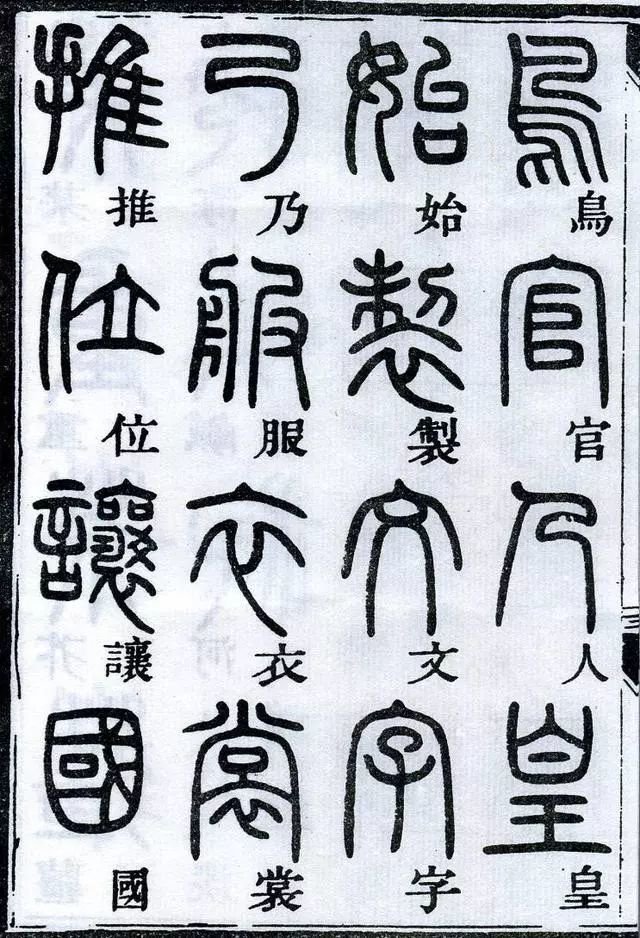 鳥官人皇
始製文字
乃服衣裳
推位讓國